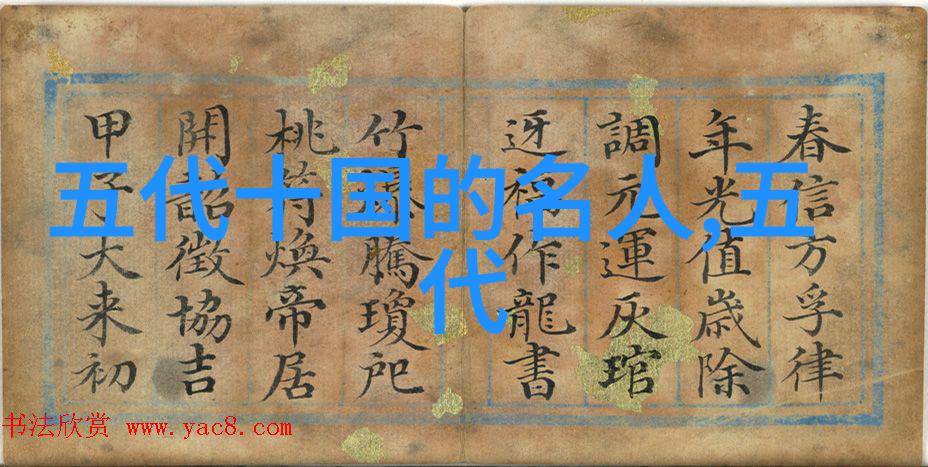 五代十国的名人,五
代
春信方孚律
年光值歲除
調元運灰琯
迓福作龍書
竹騰瓊戺
桃符煥帝居
開韶徵協吉
甲子大来初
书法欣赏 www.yac8.com